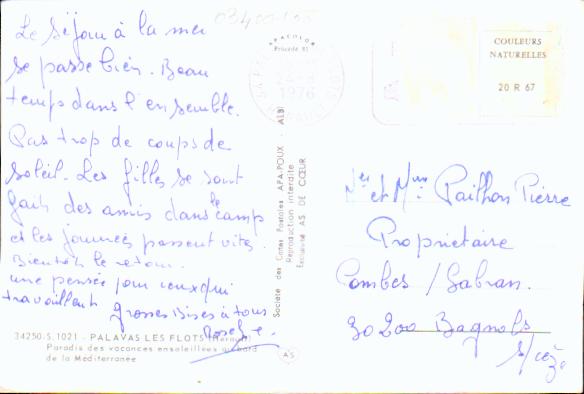 Le séjour à la mer
se passe bien. Beau
temps dans l'ensemble.
Pas trop de coups de
soleil. Les filles se sont
fait des amis dans le camp
et les journées passent vites.
Bientôt le retour.
une pensée pour ceux qui
travaillent grosses bises à tous
34250-S.1021 - PALAVAS LES FLOTS (Hérault)
Paradis des vacances ensoleillées au bord
de la Méditerranée
APACOLOR
Procédé 81
1976
Société des Cartes Postales APA-POUX - ALBI
Reproduction interdite
Exclusivité AS DE CŒUR
AS
COULEURS
NATURELLES
20 R 67
et Mme Pailhon Pierre
Propriétaire
Combes / Sabran.
30200 Bagnols
s/ cèze